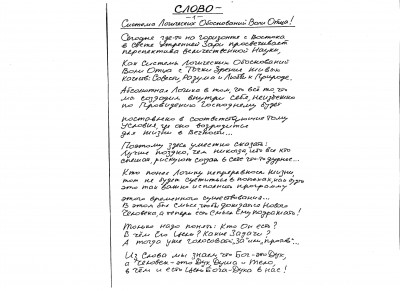 СЛОВО -
- 1 -
Система Логических Обоснований Воли Отца!
Сегодня где-то на горизонте с Востока
в свете Утренней Зари просвечивает
перспектива величественной Науки,
Как Система Логических Обоснований
Воли Отца с Точки Зрения живых
качеств: Совести, Разума и Любви к Природе.
Абсолютная Логика в том, что всё то, что
мы создадим внутри себя, неизбежно
по Провидению Господнему будет
поставлено в соответствующие тому
условия, где оно возродится
для жизни в Вечности...
Поэтому здесь уместно сказать:
Лучше поздно, чем никогда, ибо все кто
спешат, рискуют создав в себе что-то дурное...
Кто понял Логику непрерывной жизни,
тот не будет суетиться в попытках, как будто
это так важно исполнить программу
этого временного существования...
В этом был смысл, чтобы дождаться Нового
Человека, а теперь есть смысл Ему подражать!
Только надо понять: Кто Он есть?
В чём Его Цель? Какие Задачи?
А тогда уже голосовать, "за" или "против"...
Из Слова мы знаем, что Бог - это Дух,
а Человек - это Дух, Душа и Тело,
в чём и есть Цель Бога-Духа в нас!